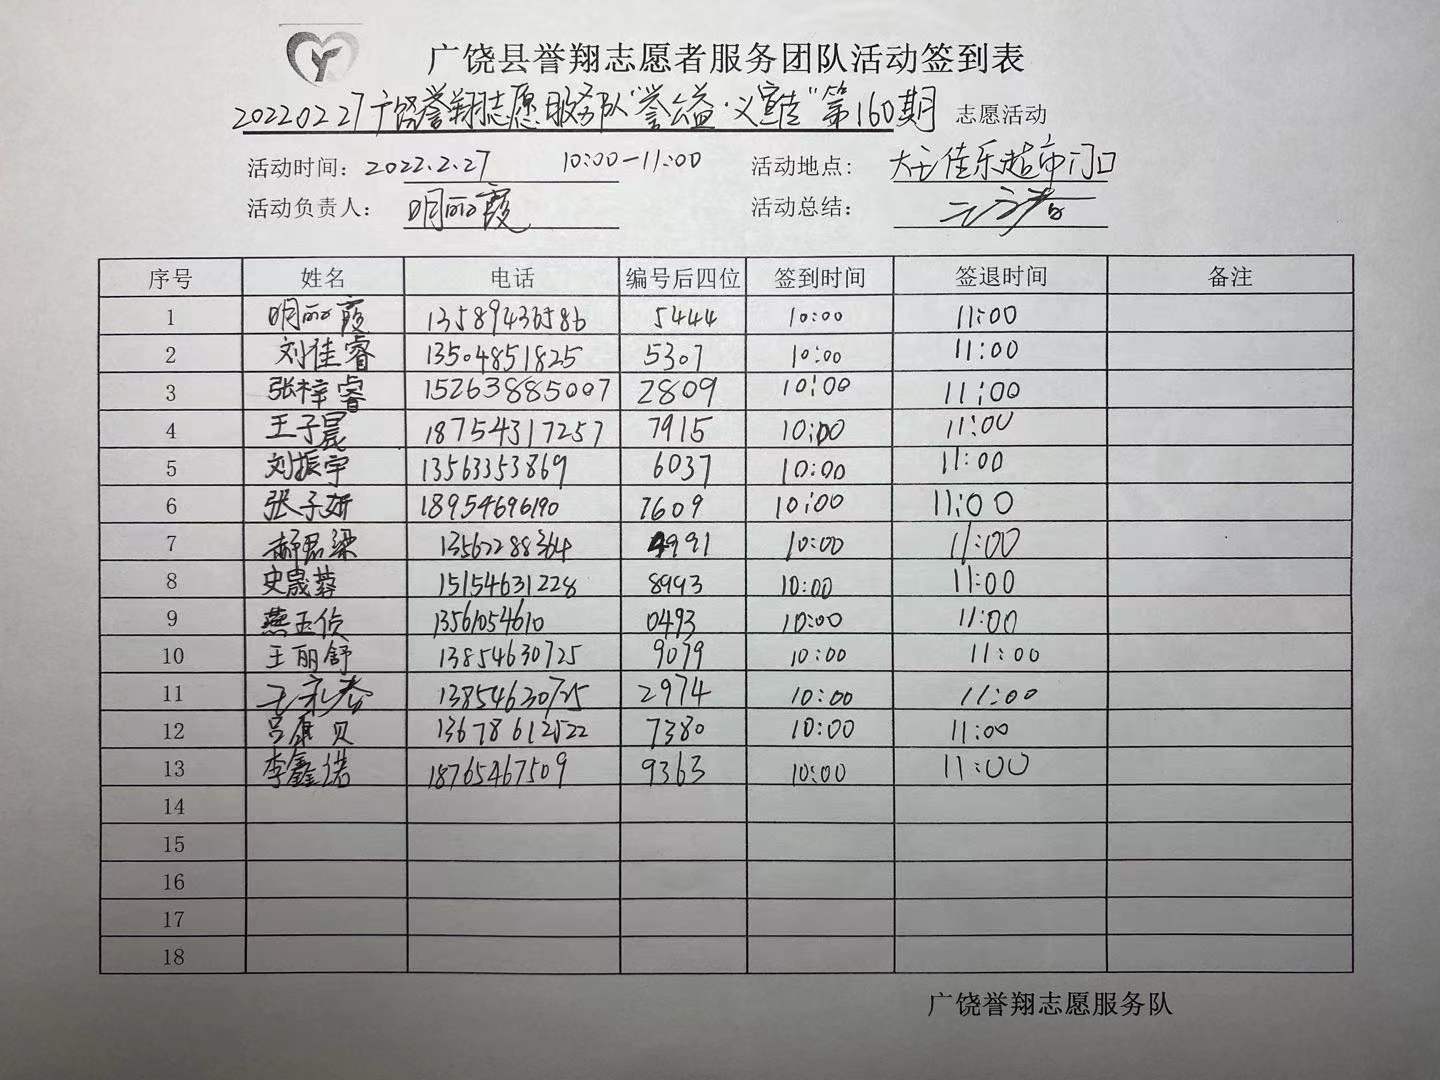 广饶县誉翔志愿者服务团队活动签到表
20220227广饶誉翔志愿服务队"誉公益·义宣传"第160期 志愿活动
活动时间：2022.2.27 10:00-11:00 活动地点: 大王佳乐超市门口
活动负责人：明丽霞 活动总结：
序号 姓名 电话 编号后四位 签到时间 签退时间 备注
1 明丽霞 13589436586 5444 10:00 11:00
2 刘佳睿 13504851825 5307 10:00 11:00
3 张梓睿 15263885007 2809 10:00 11:00
4 王子晟 18754317257 7915 10:00 11:00
5 刘振宇 13563353869 6037 10:00 11:00
6 张子妍 18954696190 7609 10:00 11:00
7 郝君梁 13562288364 4991 10:00 11:00
8 史晟蓉 15154631228 8993 10:00 11:00
9 燕玉侦 13561054610 0493 10:00 11:00
10 王丽舒 13854630725 9079 10:00 11:00
11 13854630725 2974 10:00 11:00
12 吕康贝 13678612522 7380 10:00 11:00
13 李鑫诺 18765467509 9363 10:00 11:00
14
15
16
17
18
广饶誉翔志愿服务队